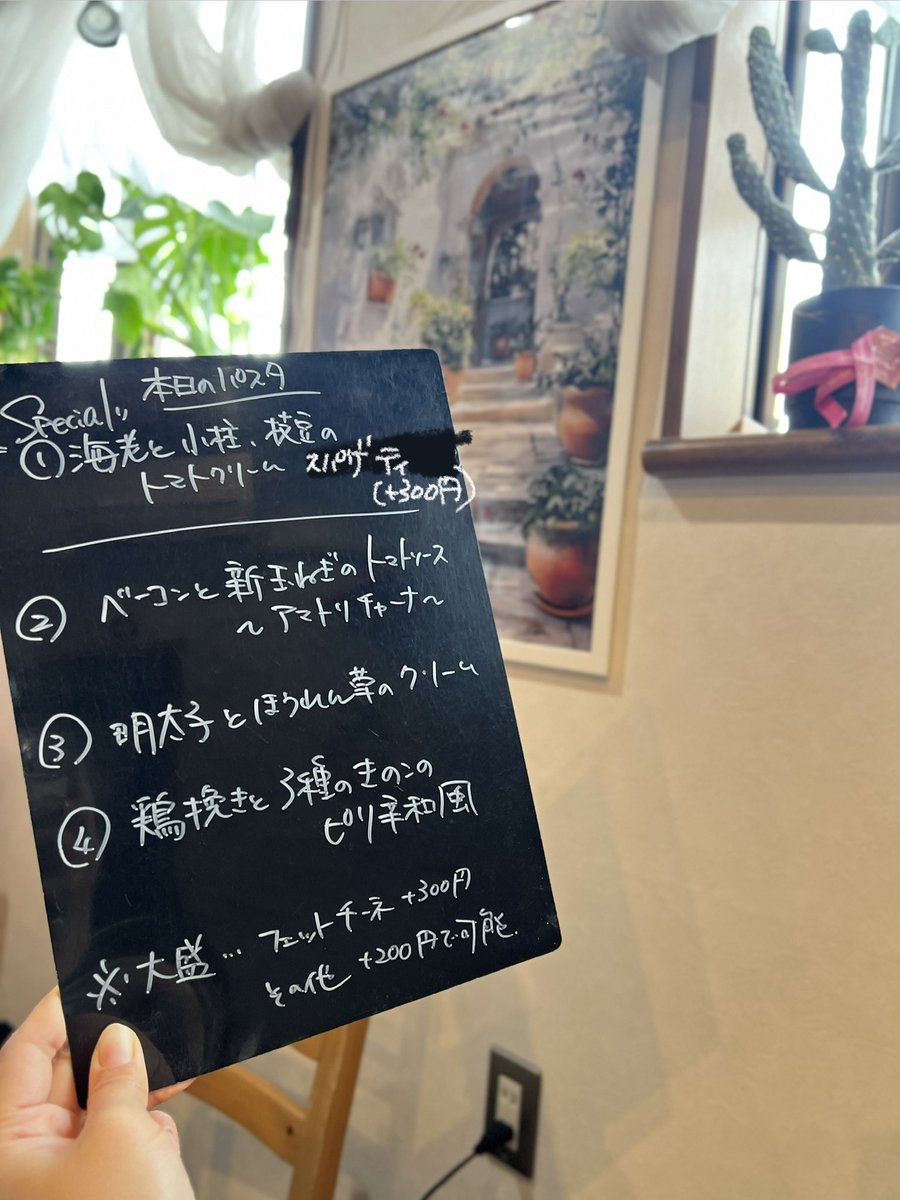 本日のパスタ
Special!!
① 海老と小柱、枝豆の
トマトクリーム スパゲティ
(+300円)
② ベーコンと新玉ねぎのトマトソース
～アマトリチャーナ～
③ 明太子とほうれん草のクリーム
④ 鶏挽きと3種のきのこの
ピリ辛和風
※大盛… フェットチーネ +300円
その他 +200円で可能.